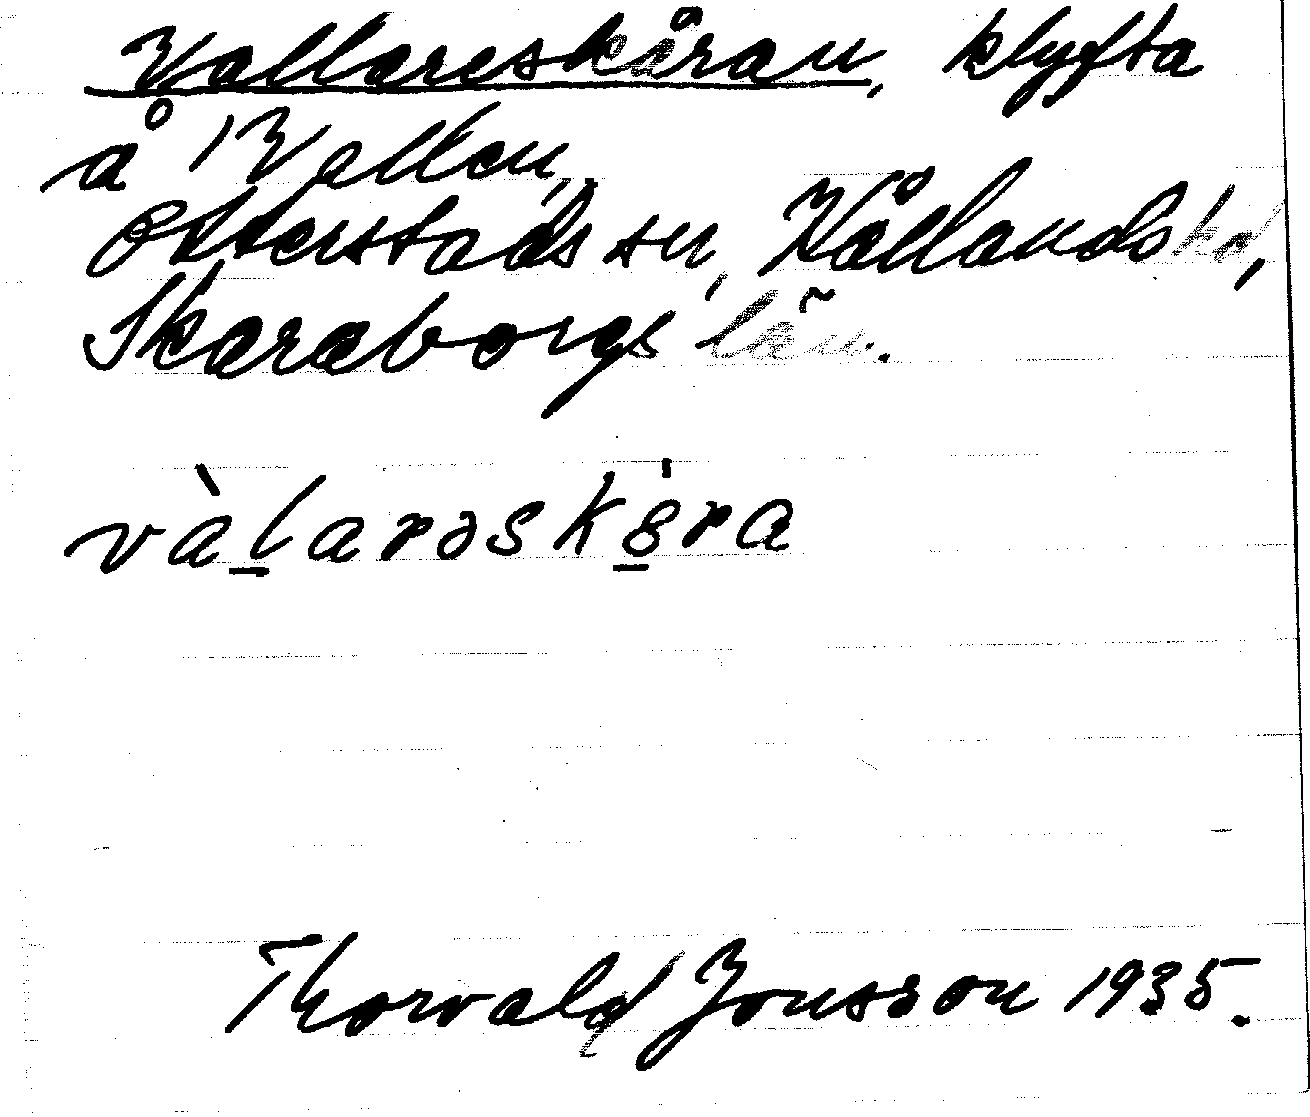 Vallareskåran, klyfta
å Vallen,
Otterstads sn, Kållands hd,
Skaraborgs län.
vàl̠arəsk8̠́ra
Thorvald Jonsson 1935.